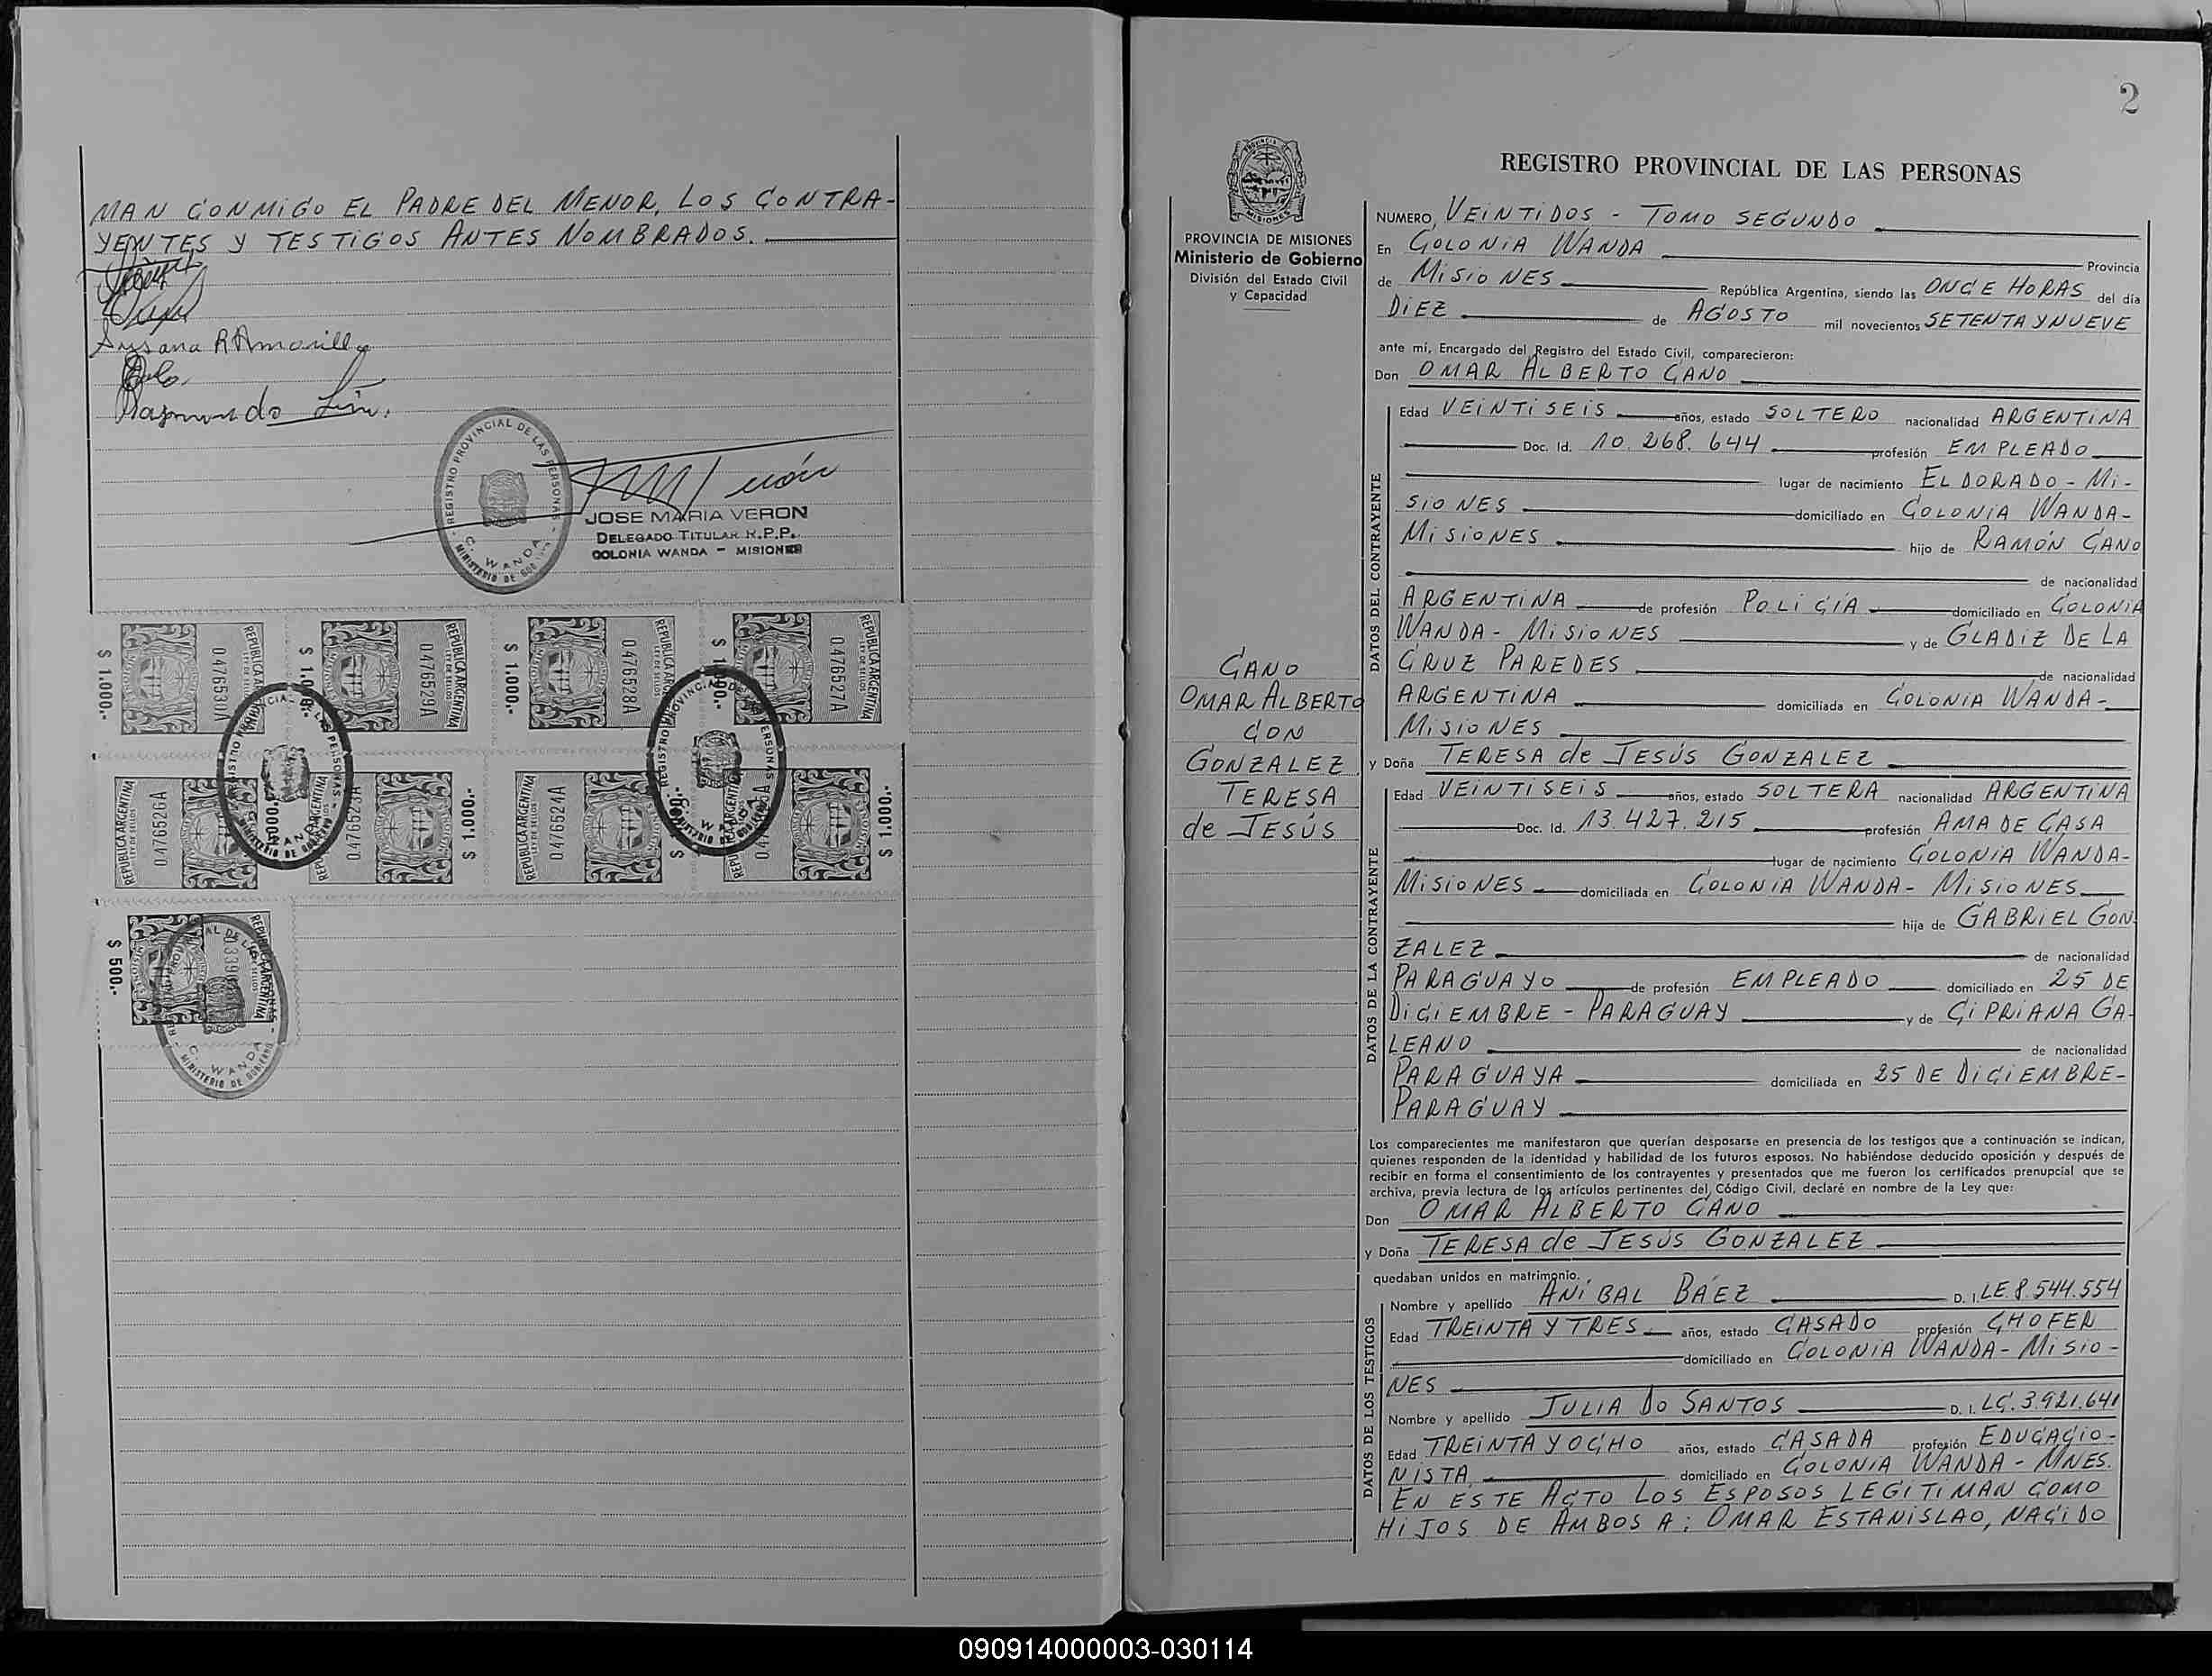 MAN CONMIGO EL PADRE DEL MENOR, LOS CONTRA-
YENTES Y TESTIGOS ANTES NOMBRADOS.
Susana R Amarilla
Raymundo
REGISTRO PROVINCIAL DE LAS PERSONAS
C. WANDA
JOSE MARIA VERON
DELEGADO TITULAR R.P.P.
COLONIA WANDA - MISIONES
REPUBLICA ARGENTINA 0476530A $ 1.000.-
REPUBLICA ARGENTINA 0476529A
REPUBLICA ARGENTINA 0476528A $ 1.000.-
REPUBLICA ARGENTINA 0476527A
REPUBLICA ARGENTINA 0476526A
0476523A $ 1.000.-
REPUBLICA ARGENTINA 0476524A
$ 1.000.-
REPUBLICA ARGENTINA
$ 500.-
2
PROVINCIA DE MISIONES
Ministerio de Gobierno
División del Estado Civil
y Capacidad
CANO
OMAR ALBERTO
CON
GONZALEZ
TERESA
de JESÚS
REGISTRO PROVINCIAL DE LAS PERSONAS
NUMERO, VEINTIDOS - TOMO SEGUNDO
En COLONIA WANDA Provincia
de MISIONES República Argentina, siendo las ONCE HORAS del día
DIEZ de AGOSTO mil novecientos SETENTA Y NUEVE
ante mí, Encargado del Registro del Estado Civil, comparecieron:
Don OMAR ALBERTO CANO
DATOS DEL CONTRAYENTE
Edad VEINTISEIS años, estado SOLTERO nacionalidad ARGENTINA
Doc. Id. 10.268.644 profesión EMPLEADO
lugar de nacimiento ELDORADO - Mi-
SIONES domiciliado en COLONIA WANDA-
MISIONES hijo de RAMÓN CANO
de nacionalidad
ARGENTINA de profesión POLICÍA domiciliado en COLONIA
WANDA - MISIONES y de GLADIZ DE LA
CRUZ PAREDES de nacionalidad
ARGENTINA domiciliada en COLONIA WANDA-
MISIONES
y Doña TERESA de JESÚS GONZALEZ
DATOS DE LA CONTRAYENTE
Edad VEINTISEIS años, estado SOLTERA nacionalidad ARGENTINA
Doc. Id. 13.427.215 profesión AMA DE CASA
lugar de nacimiento COLONIA WANDA-
MISIONES domiciliada en COLONIA WANDA - MISIONES
hija de GABRIEL GON-
ZALEZ de nacionalidad
PARAGUAYO de profesión EMPLEADO domiciliado en 25 DE
DICIEMBRE - PARAGUAY y de CIPRIANA GA-
LEANO de nacionalidad
PARAGUAYA domiciliada en 25 DE DICIEMBRE-
PARAGUAY
Los comparecientes me manifestaron que querían desposarse en presencia de los testigos que a continuación se indican,
quienes responden de la identidad y habilidad de los futuros esposos. No habiéndose deducido oposición y después de
recibir en forma el consentimiento de los contrayentes y presentados que me fueron los certificados prenupcial que se
archiva, previa lectura de los artículos pertinentes del Código Civil, declaré en nombre de la Ley que:
Don OMAR ALBERTO CANO
y Doña TERESA de JESÚS GONZALEZ
quedaban unidos en matrimonio.
DATOS DE LOS TESTIGOS
Nombre y apellido ANIBAL BÁEZ D. I. LE. 8.544.554
Edad TREINTA Y TRES años, estado CASADO profesión CHOFER
domiciliado en COLONIA WANDA - MISIO-
NES
Nombre y apellido JULIA DO SANTOS D. I. LC. 3.921.641
Edad TREINTA Y OCHO años, estado CASADA profesión EDUCACIO-
NISTA domiciliado en COLONIA WANDA - MNES.
EN ESTE ACTO LOS ESPOSOS LEGITIMAN COMO
HIJOS DE AMBOS A: OMAR ESTANISLAO, NACIDO
090914000003-030114